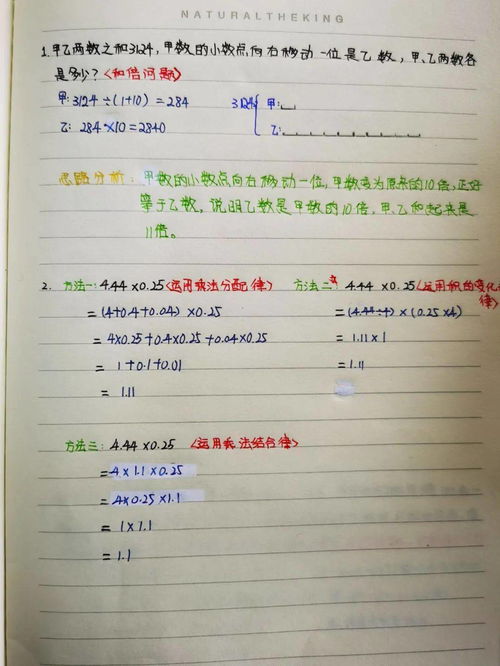 NATURALTHEKING
1. 甲乙两数之和3124,甲数的小数点向右移动一位是乙数,甲、乙两数各
是多少?<和倍问题>
甲:3124÷(1+10)=284
3124 甲:
乙:284×10=2840
乙:
思路分析:甲数的小数点向右移动一位,甲数变为原来的10倍,正好
等于乙数,说明乙数是甲数的10倍,甲、乙和起来是
11倍。
2. 方法一:4.44×0.25<运用乘法分配律> 方法二:4.44×0.25<运用积的变化
律>
=(4+0.4+0.04)×0.25 =(4.44÷4)×(0.25×4)
=4×0.25+0.4×0.25+0.04×0.25 =1.11×1
=1+0.1+0.01 =1.11
=1.11
方法三:4.44×0.25 <运用乘法结合律>
=4×1.1×0.25
=4×0.25×1.1
=1×1.1
=1.1